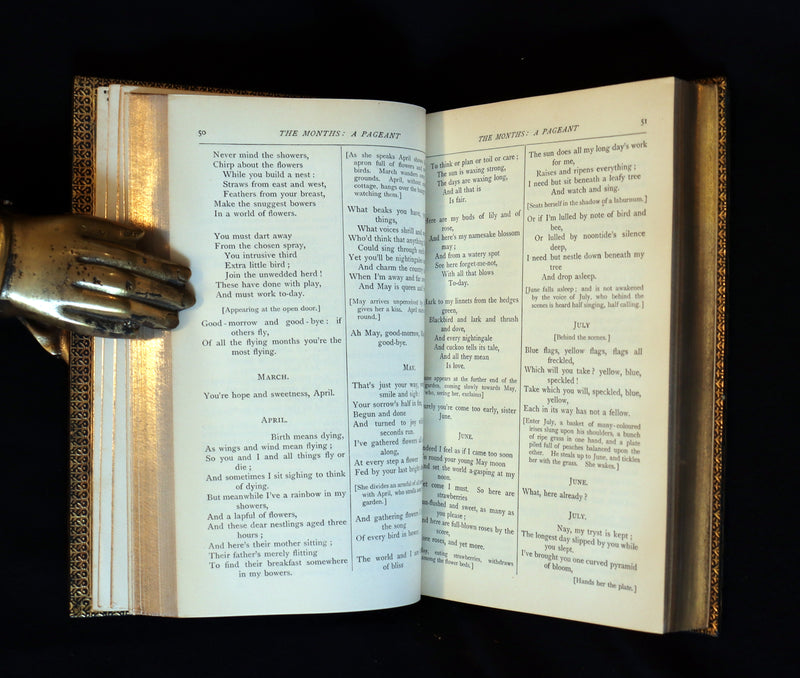 50
THE MONTHS: A PAGEANT
Never mind the showers,
Chirp about the flowers
While you build a nest :
Straws from east and west,
Feathers from your breast,
Make the snuggest bowers
In a world of flowers.
You must dart away
From the chosen spray,
You intrusive third
Extra little bird ;
Join the unwedded herd !
These have done with play,
And must work to-day.
[Appearing at the open door.]
Good-morrow and good-bye : if
others fly,
Of all the flying months you're the
most flying.
MARCH.
You're hope and sweetness, April.
APRIL.
Birth means dying,
As wings and wind mean flying ;
So you and I and all things fly or
die ;
And sometimes I sit sighing to think
of dying.
But meanwhile I've a rainbow in my
showers,
And a lapful of flowers,
And these dear nestlings aged three
hours ;
And here's their mother sitting ;
Their father's merely flitting
To find their breakfast somewhere
in my bowers.
[As she speaks April shows
apron full of flowers and
birds. March wanders
grounds. April, without
cottage, hangs over the
watching them.]
What beaks you have,
things,
What voices shrill and
Who'd think that anything
Could sing through
Yet you'll be nightingales
And charm the country
When I'm away and far
And May is queen and
[May arrives unperceived
gives her a kiss. April
round.]
Ah May, good-morrow,
good-bye.
MAY.
That's just your way,
smile and sigh :
Your sorrow's half in fun,
Begun and done
And turned to joy
seconds run.
I've gathered flowers
along,
At every step a flower
Fed by your last bright
[She divides an armful of
with April, who
garden.]
And gathering flowers
the song
Of every bird in bower
The world and I
of bliss
THE MONTHS: A PAGEANT
51
To think or plan or toil or care ;
The sun is waxing strong,
The days are waxing long,
And all that is
Is fair.
Here are my buds of lily and of
rose,
And here's my namesake blossom
may ;
And from a watery spot
See here forget-me-not,
With all that blows
To-day.
Hark to my linnets from the hedges
green,
Blackbird and lark and thrush
and dove,
And every nightingale
And cuckoo tells its tale,
And all they mean
Is love.
June appears at the further end of the
garden, coming slowly towards May,
who, seeing her, exclaims]
Surely you're come too early, sister
June.
JUNE.
Indeed I feel as if I came too soon
To round your young May moon
And set the world a-gasping at my
noon.
Yet come I must. So here are
strawberries
Sun-flushed and sweet, as many as
you please ;
And here are full-blown roses by the
score,
More roses, and yet more.
eating strawberries, withdraws
among the flower beds.]
The sun does all my long day's work
for me,
Raises and ripens everything ;
I need but sit beneath a leafy tree
And watch and sing.
[Seats herself in the shadow of a laburnum.]
Or if I'm lulled by note of bird and
bee,
Or lulled by noontide's silence
deep,
I need but nestle down beneath my
tree
And drop asleep.
[June falls asleep ; and is not awakened
by the voice of July, who behind the
scenes is heard half singing, half calling.]
JULY
[Behind the scenes.]
Blue flags, yellow flags, flags all
freckled,
Which will you take ? yellow, blue,
speckled !
Take which you will, speckled, blue,
yellow,
Each in its way has not a fellow.
[Enter July, a basket of many-coloured
irises slung upon his shoulders, a bunch
of ripe grass in one hand, and a plate
piled full of peaches balanced upon the
other. He steals up to June, and tickles
her with the grass. She wakes.]
JUNE.
What, here already ?
JULY.
Nay, my tryst is kept ;
The longest day slipped by you while
you slept.
I've brought you one curved pyramid
of bloom,
[Hands her the plate.]